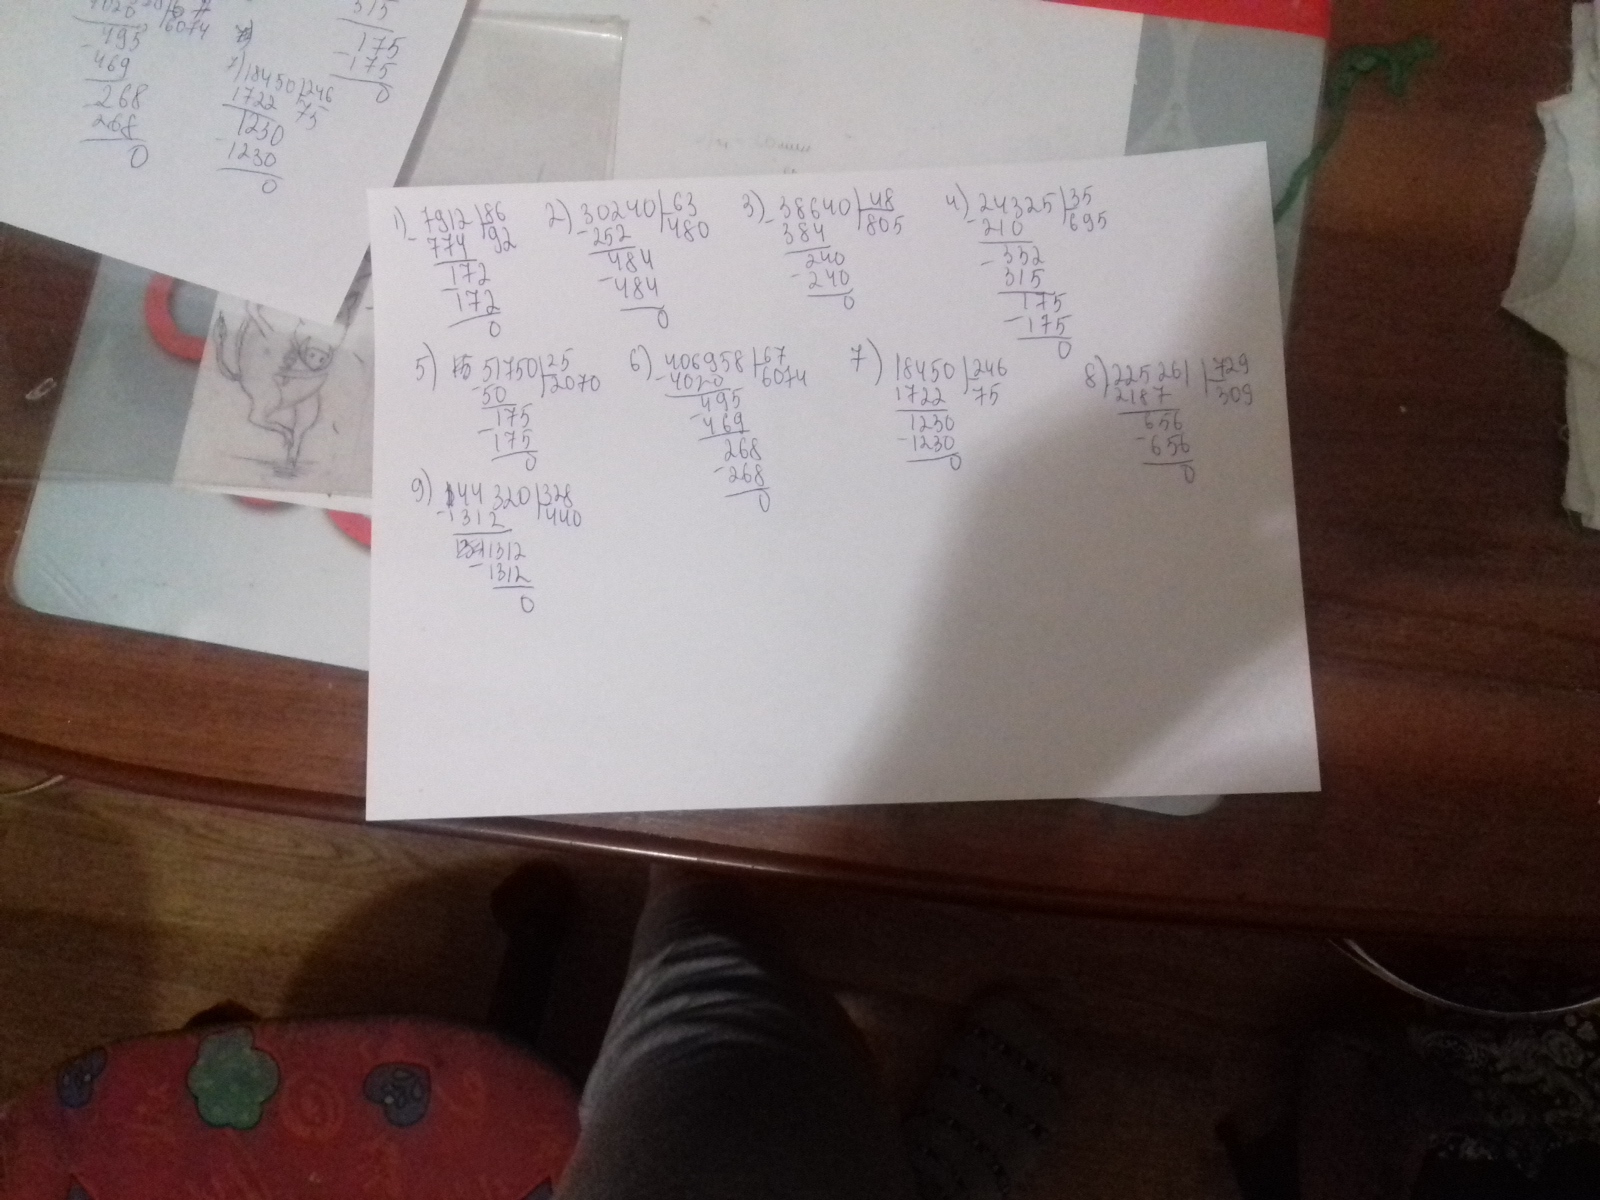 495
469
268
268
0
7) 18450 246
1722 75
1230
1230
0
315
175
-175
0
1) 7912 86
- 774 92
172
- 172
0
2) 30240 63
-252 480
484
-484
0
3) -38640 48
384 805
240
-240
0
4) -24325 35
210 695
-332
315
175
-175
0
5) 51750 25
-50 2070
175
-175
0
6) 406958 67
-4020 6074
495
-469
268
-268
0
7) 18450 246
1722 75
1230
-1230
0
8) 225261 729
2187 309
656
-656
0
9) 144320 328
-1312 440
1312
-1312
0